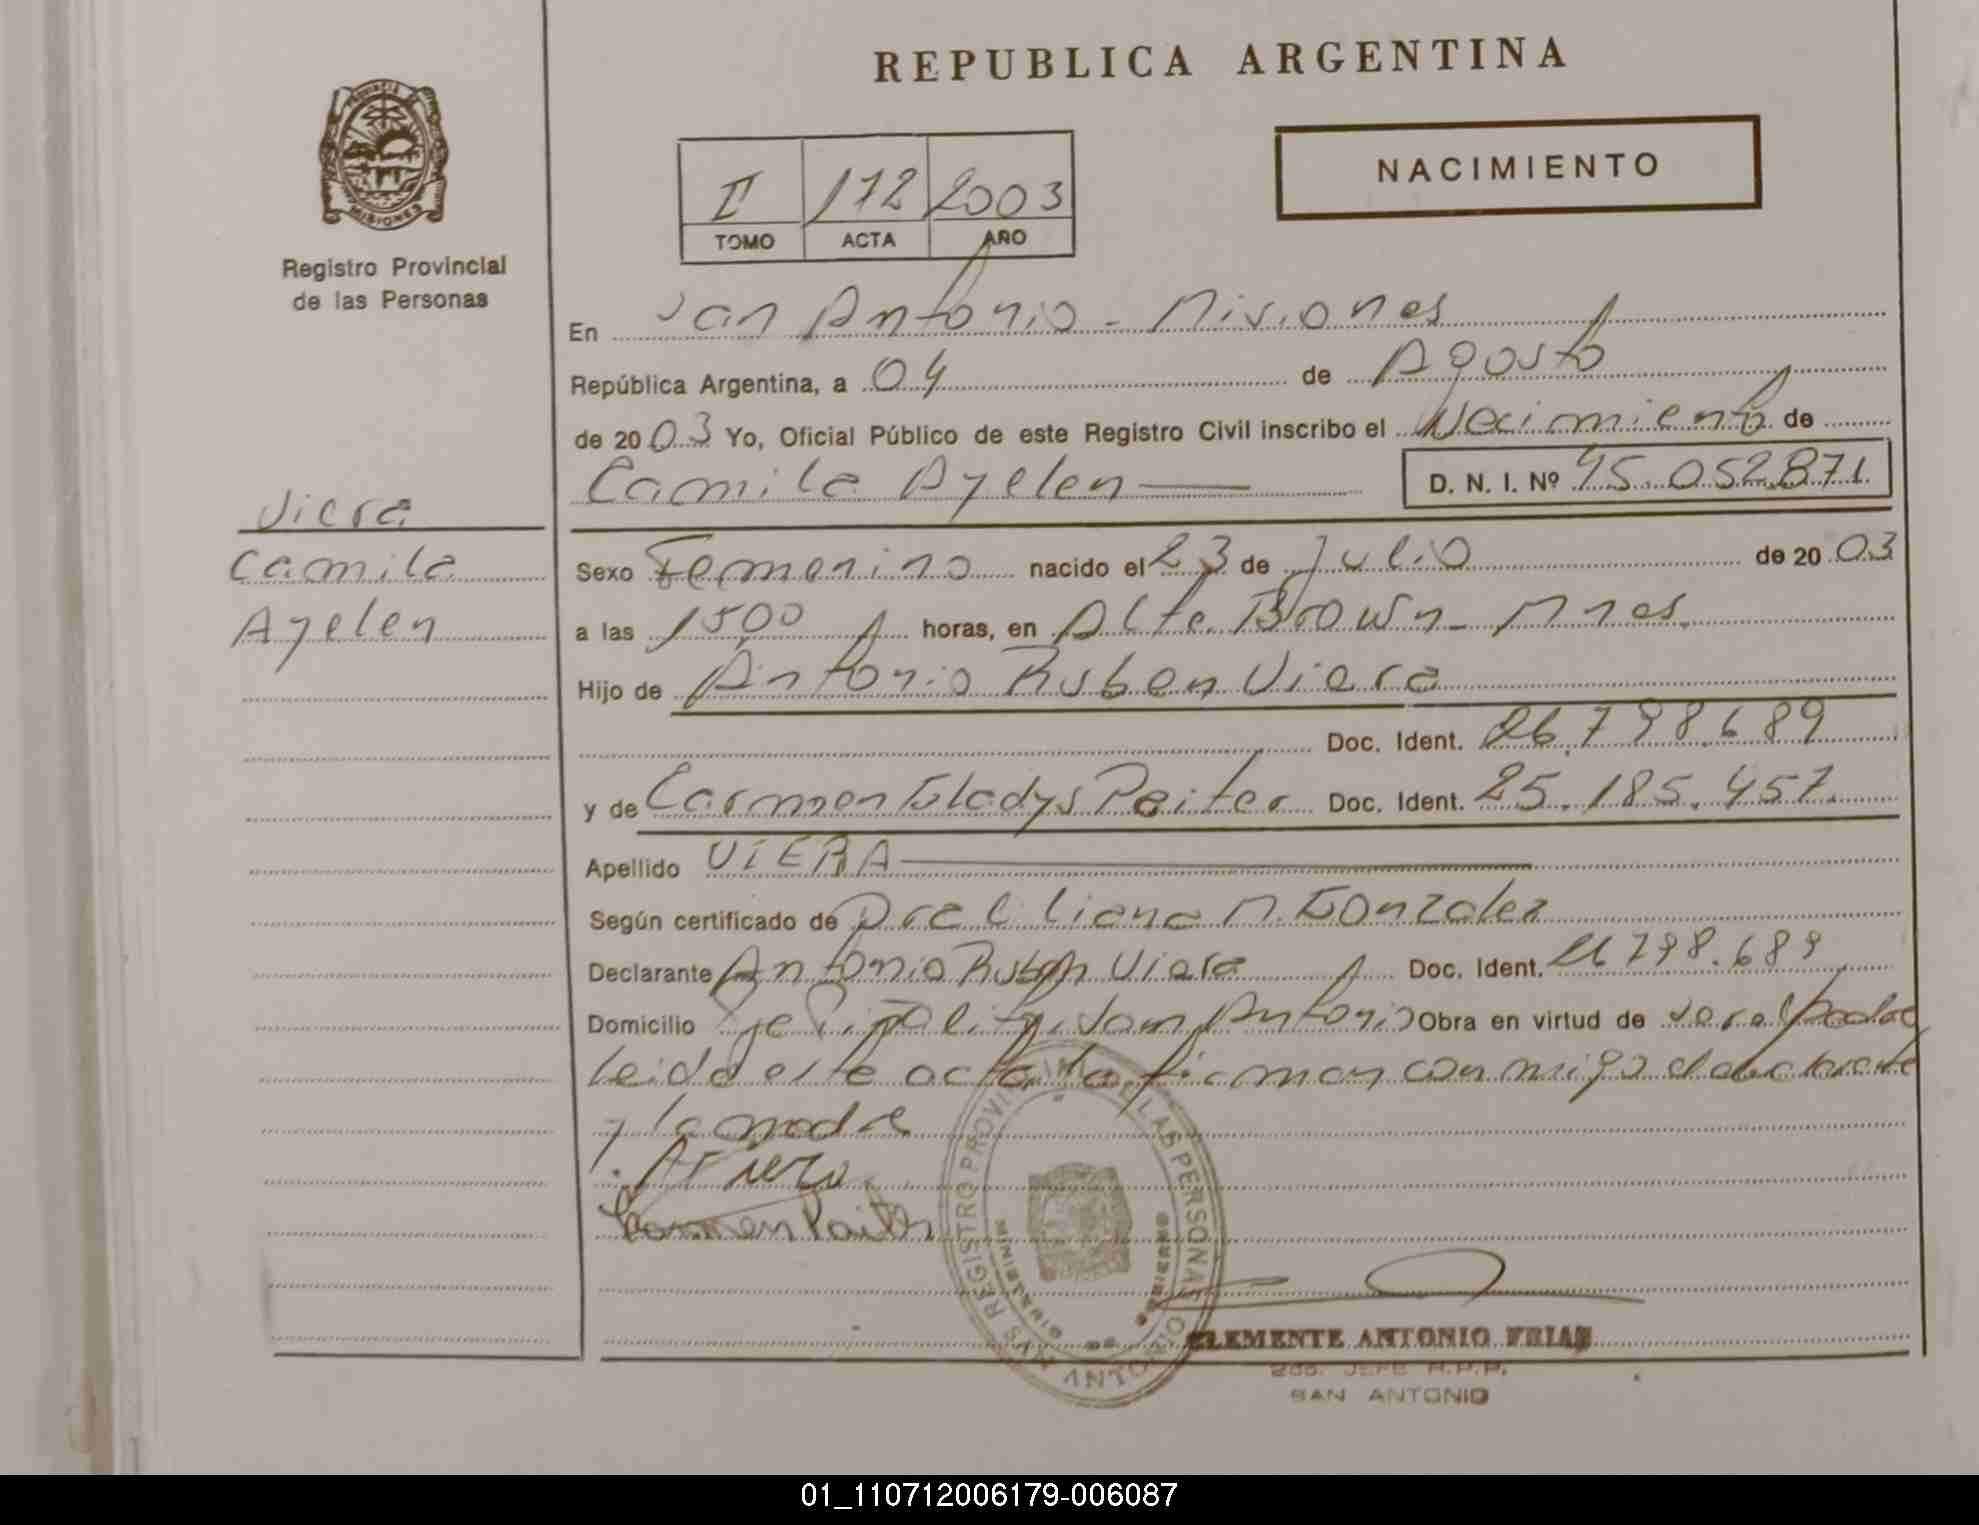 REPUBLICA ARGENTINA
NACIMIENTO
II 172 2003
TOMO ACTA AÑO
PROVINCIA DE
MISIONES
Registro Provincial
de las Personas
En San Antonio - Misiones
República Argentina, a 04 de Agosto
de 2003 Yo, Oficial Público de este Registro Civil inscribo el Nacimiento de
Camila Ayelen D. N. I. Nº 45.052.871
Viera
Camila
Ayelen
Sexo Femenino nacido el 23 de Julio de 2003
a las 15,00 horas, en Alte. Brown - Mnes.
Hijo de Antonio Ruben Viera
Doc. Ident. 26.798.689
y de Carmen Gladys Peiter Doc. Ident. 25.185.457
Apellido VIERA
Según certificado de Dra Liliana M. Gonzalez
Declarante Antonio Ruben Viera Doc. Ident. 26 798.689
Domicilio San Antonio Obra en virtud de
leida este acta la firman conmigo el declarante
y la madre
Carmen Paiter
REGISTRO PROVINCIAL DE LAS PERSONAS
SAN ANTONIO
MISIONES
CLEMENTE ANTONIO FRIAS
2do. JEFE R.P.P.
SAN ANTONIO
01_110712006179-006087